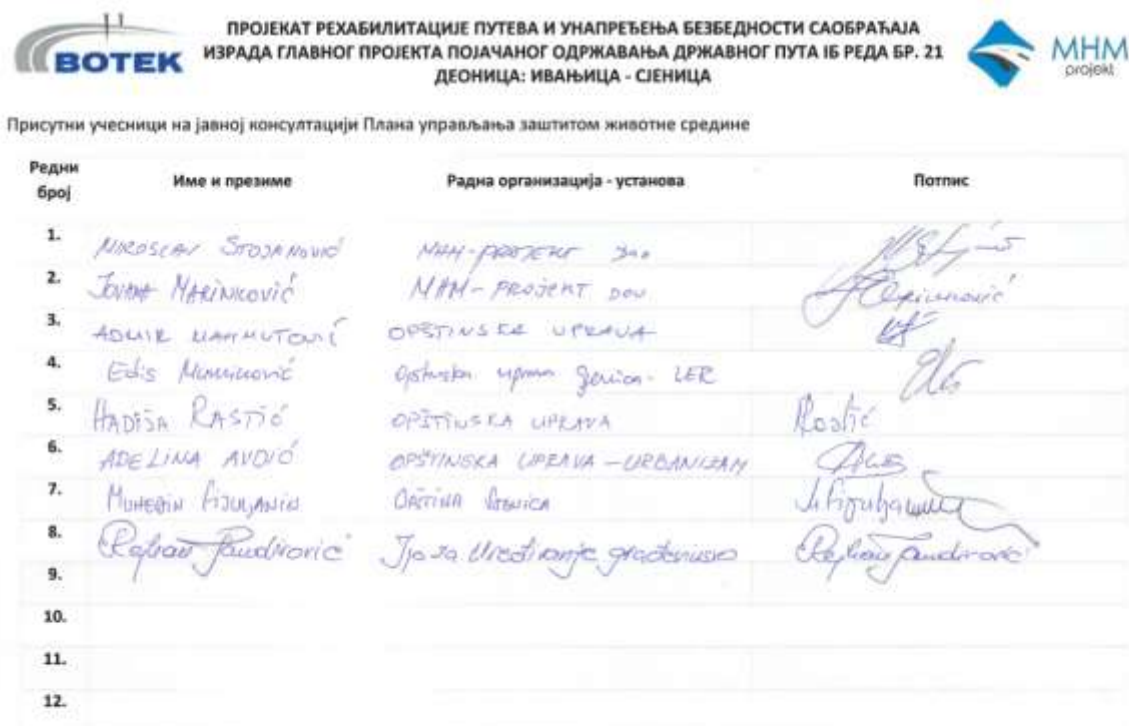 ВОТЕК
ПРОЈЕКАТ РЕХАБИЛИТАЦИЈЕ ПУТЕВА И УНАПРЕЂЕЊА БЕЗБЕДНОСТИ САОБРАЋАЈА
ИЗРАДА ГЛАВНОГ ПРОЈЕКТА ПОЈАЧАНОГ ОДРЖАВАЊА ДРЖАВНОГ ПУТА IБ РЕДА БР. 21
ДЕОНИЦА: ИВАЊИЦА - СЈЕНИЦА
MHM
projekt
Присутни учесници на јавној консултацији Плана управљања заштитом животне средине
Редни број Име и презиме Радна организација - установа Потпис
1. MIROSLAV STOJANOVIĆ MHM-PROJEKT
2. MARINKOVIĆ MHM-PROJEKT DOO
3. ADMIR MAHMUTOVIĆ OPŠTINSKA UPRAVA
4. Edis LER
5. HADIŠA RASTIĆ OPŠTINSKA UPRAVA Rastić
6. ADELINA AVDIĆ OPŠTINSKA UPRAVA - URBANIZAM
7. OPŠTINA
8. građevinsko
9.
10.
11.
12.